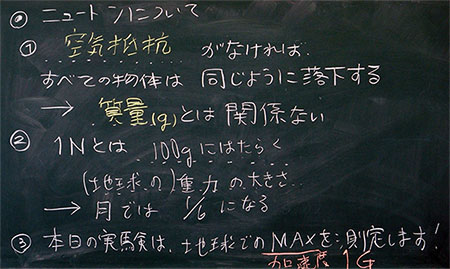 ◎ ニュートンについて
① 空気抵抗 がなければ、
すべての物体は 同じように落下する
→ 質量(g)とは 関係ない
② 1Nとは 100gにはたらく
(地球の)重力の大きさ
→ 月では 1/6 になる
③ 本日の実験は、地球でのMAXを測定します!
加速度 1G